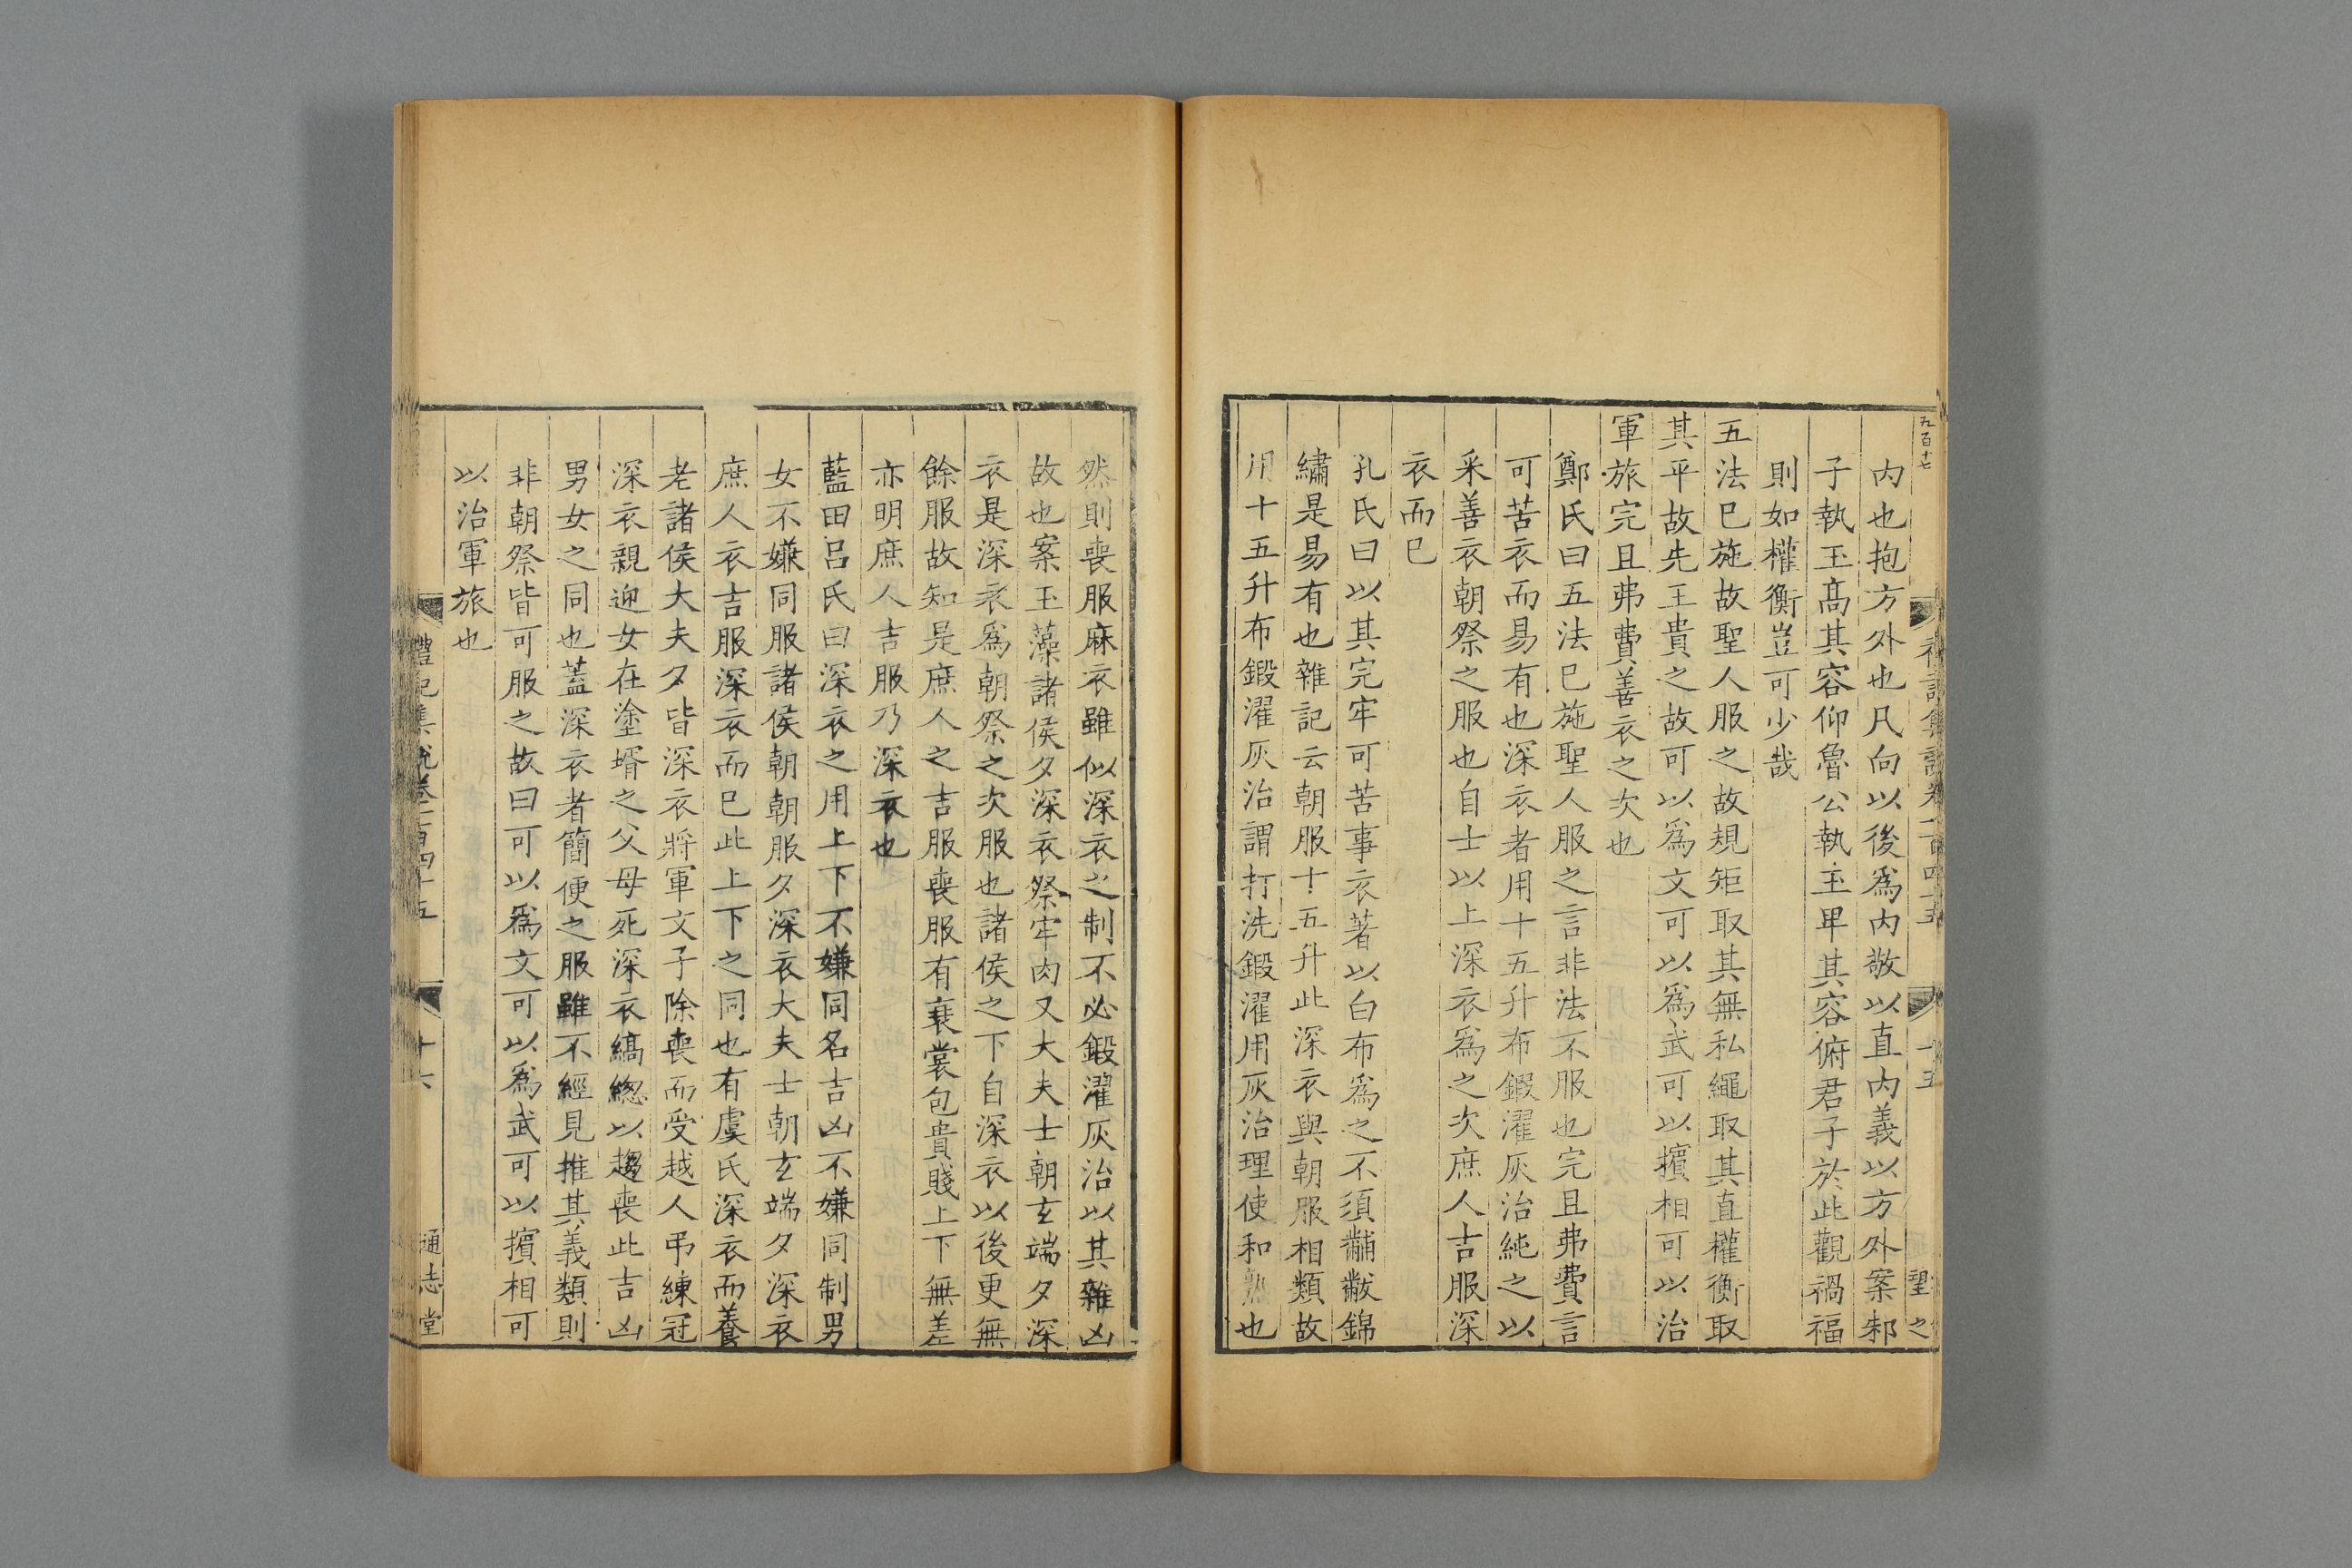 九百十七
禮記集說卷一百四十五
十五
望之
内也抱方外也尺向以後爲内敬以直内義以方外案邾
子執玉髙其容仰魯公執玉畀其容俯君子於此觀禍福
則如權衡豈可少哉
五法已施故聖人服之故規矩取其無私繩取其直權衡取
其平故先王貴之故可以爲文可以爲武可以擯相可以治
軍旅完且弗費善衣之次也
鄭氏曰五法已施聖人服之言非法不服也完且弗費言
可苦衣而易有也深衣者用十五升布鍜濯灰治純之以
采善衣朝祭之服也自士以上深衣爲之次庶人吉服深
衣而已
孔氏曰以其完牢可苦事衣著以白布爲之不須黼黻錦
繡是易有也雜記云朝服十五升此深衣與朝服相類故
用十五升布鍛濯灰治謂打洗鍛濯用灰治理使和熟也
然則喪服麻衣雖似深衣之制不必鍛濯灰治以其雜凶
故也案玉藻諸侯夕深衣祭牢肉又大夫士朝玄端夕深
衣是深衣爲朝祭之次服也諸侯之下自深衣以後更無
餘服故知是庶人之吉服喪服有衰裳包貴賤上下無差
亦明庶人吉服乃深衣也
藍田呂氏曰深衣之用上下不嫌同名吉凶不嫌同制男
女不嫌同服諸侯朝朝服夕深衣大夫士朝玄端夕深衣
庶人衣吉服深衣而已此上下之同也有虞氏深衣而養
老諸侯大夫夕皆深衣將軍文子除喪而受越人弔練冠
深衣親迎女在塗壻之父母死深衣縞緫以趨喪此吉凶
男女之同也蓋深衣者簡便之服雖不經見推其義類則
非朝祭皆可服之故曰可以爲文可以爲武可以擯相可
以治軍旅也
禮記集說卷一百四十五
十六
通志堂